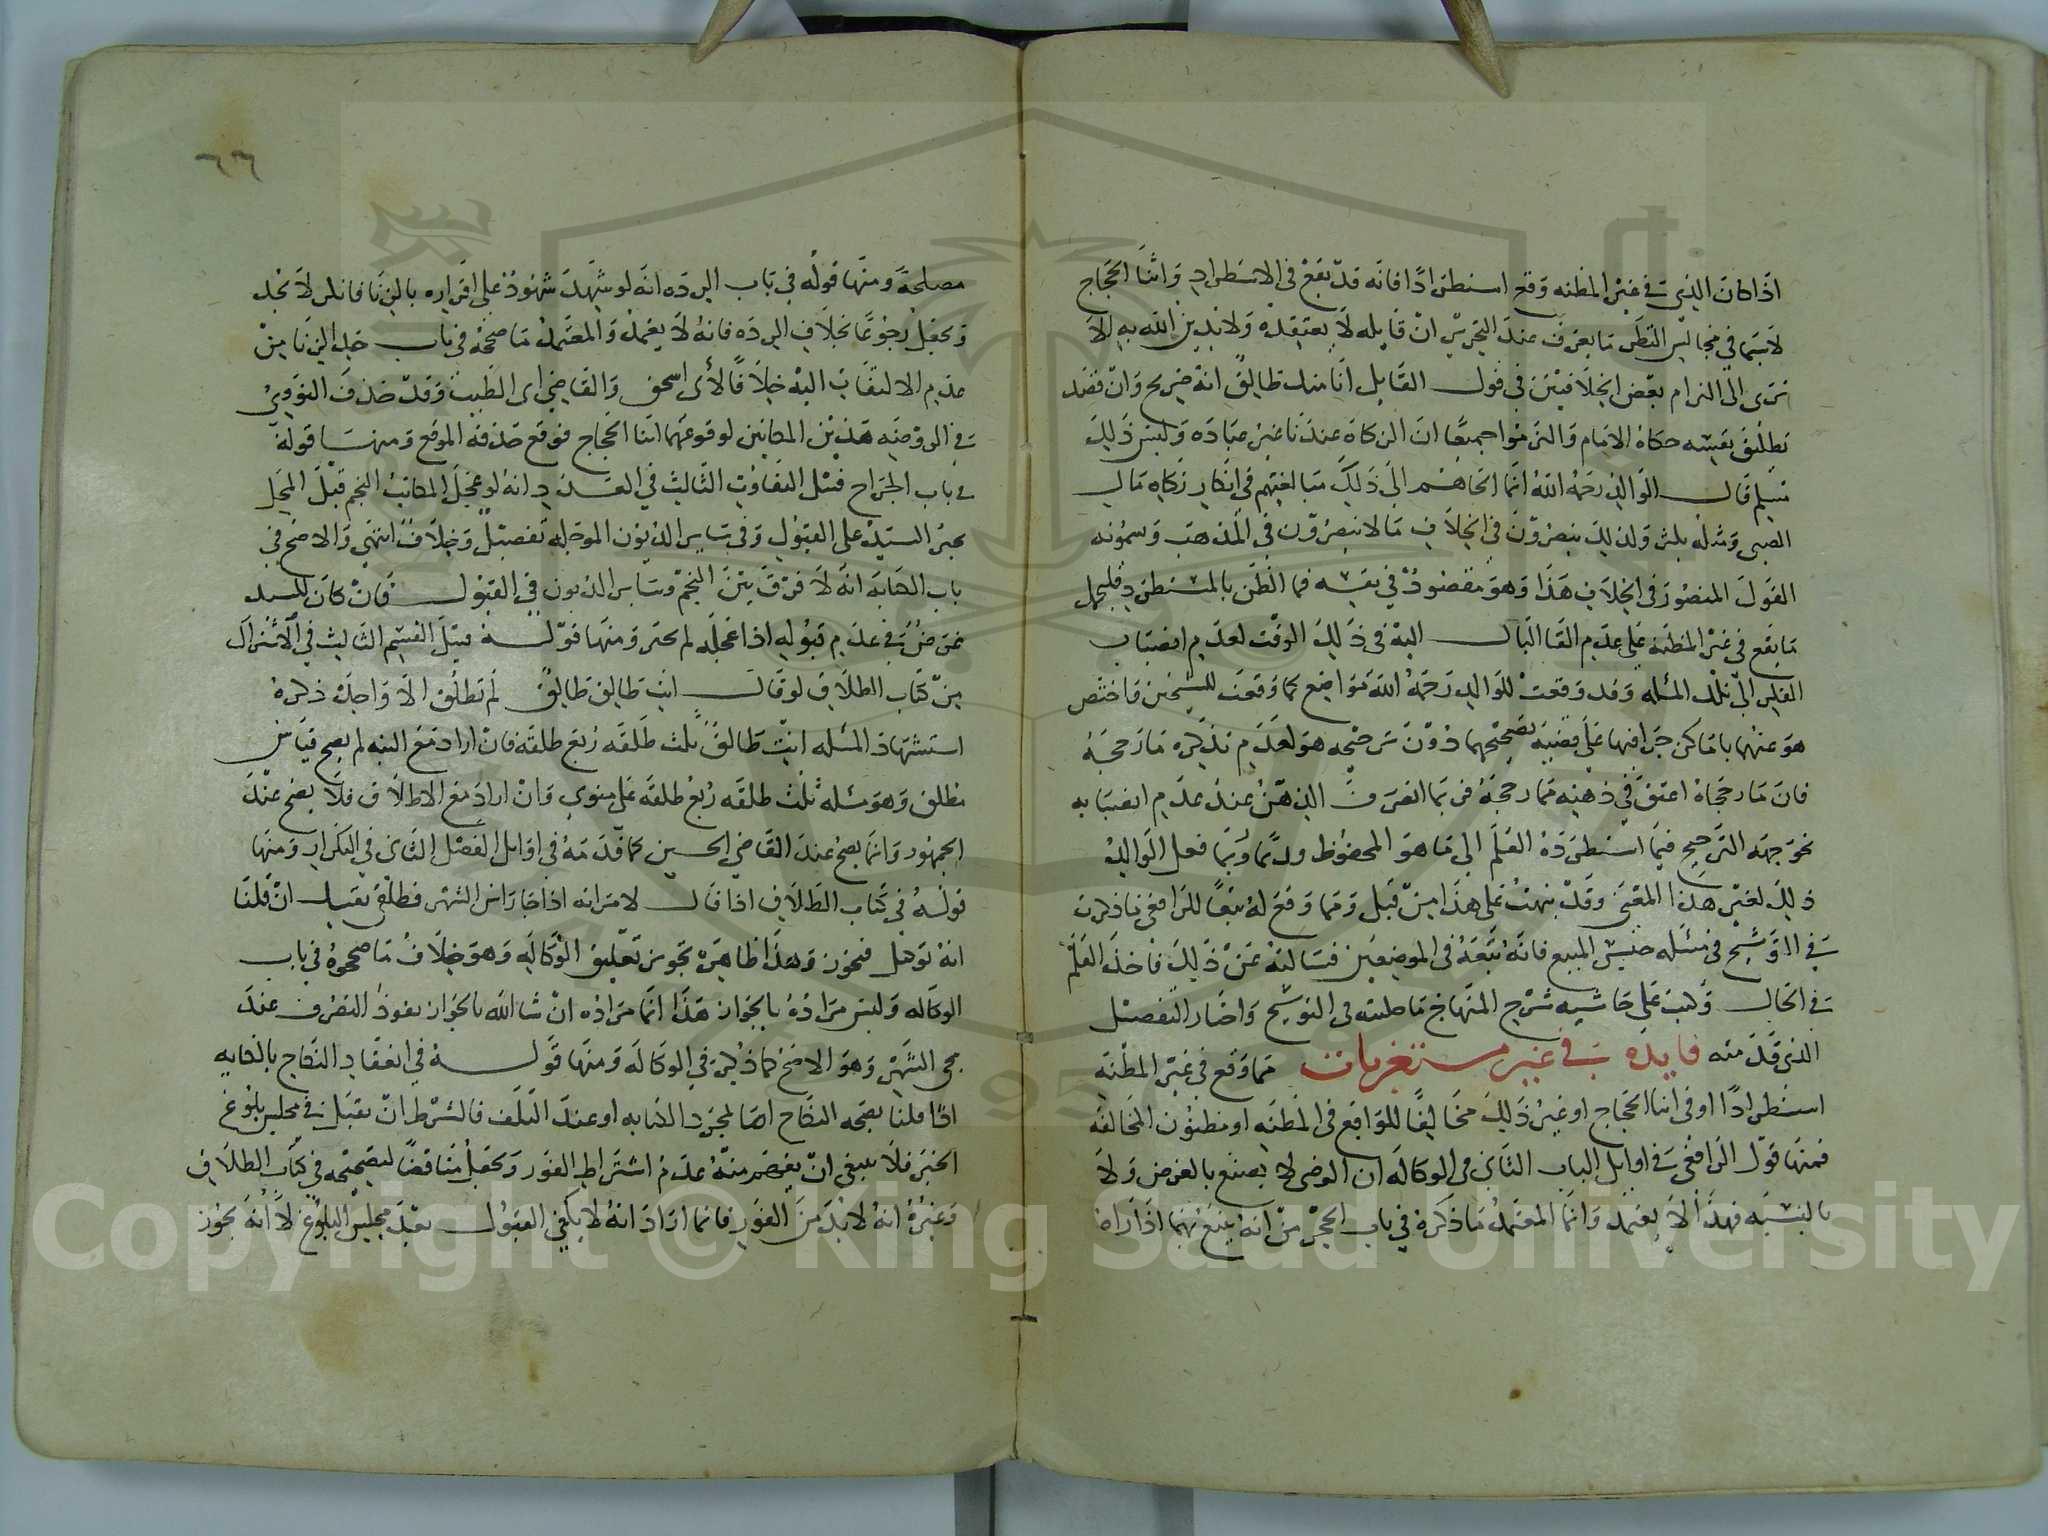 اذا كان الذي في غير المظنه وقع استطرادا فانه قد يقع في الاستطراد واثنا الحجاج
لا سيما في مجالس النظر ما يعرف عند التحرير ان قايله لا يعتقده ولا يدين الله به الا
ترى الى التزام بعض الخلافيين في قول القايل انا منك طالق انه صريح وان قصد
تطليق نفسه حكاه الامام والتزموا جميعا ان الزكاة عندنا غير عباده وليس ذلك
قال الوالد رحمه الله انما الجاهم الى ذلك مبالغتهم في انكار زكاه مال
الصبي ولذلك ينصرون في الخلاف ما لا ينصرون في المذهب ويسمونه
القول المنصور في الخلاف هذا وهو مقصود في نفسه فما الظن بالمستطرد فليحمل
ما يقع في غير المظنه على عدم القا البال اليه في ذلك الوقت لعدم انصباب
القلم الى تلك المسله وقد وقعت للوالد رحمه الله مواضع كما وقعت للشيخين فاختص
هو عنهما باماكن جرا فيها على قضيه تصحيحهما دون ترجيحه هو لعدم تذكره ما رجحه
فان ما رجحاه اعتق في ذهنه مما رجحه فربما انصرف الذهن عند عدم انصبابه
نحو جهه الترجيح فيما استطرده القلم الى ما هو المحفوظ وربما فعل الوالد
ذلك لغير هذا المعنى وقد نبهت على هذا من قبل ومما وقع له تبعا للرافعي ما ذكرت
في التوشيح في مسله حبس المبيع فانه تبعه في الموضعين فسالته عن ذلك فاخذ القلم
في الحال وكتب على حاشيه شرح المنهاج ما حكيته في التوشيح واختار التفصيل
الذي قدمته فايده في غير مستغربات مما وقع في غير المظنه
استطرادا او في اثنا الحجاج او غير ذلك مخالفا للواقع في المظنه او مظنون المخالفه
فمنها قول الرافعي في اوايل الباب الثاني من الوكاله ان الوصي لا يصنع بالعرض ولا
بالنسيه فهذا لا يعتمد وانما المعتمد ما ذكره في باب الحجر من انه يبيع بهما اذا راه
٦٦
مصلحه ومنها قوله في باب الرده انه لو شهد شهود على اقراره بالزنا فانكر لا يحد
ويجعل رجوعا بخلاف الرده فانه لا يعتمد والمعتمد ما صححه في باب حد الزنا من
عدم الالتفات اليه خلافا لابي اسحق والقاضي ابي الطيب وقد حذف النووي
في الروضه هذين المكانين لوقوعهما اثنا الحجاج فوقع حذفه الموقع ومنها قوله
في باب الجراح قبيل التفاوت الثالث في العدد انه لو عجل المكاتب النجم قبل المحل
يجبر السيد على القبول وفي ساير الديون الموجله تفصيل وخلاف انتهى والاصح في
باب الكتابه انه لا فرق بين النجم وساير الديون في القبول فان كان للسيد
غرض في عدم قبوله اذا عجله لم يجبر ومنها قوله قبيل القسم الثالث في الانزال
من كتاب الطلاق لو قال انت طالق طالق لم تطلق الا واحده ذكره
استشهادا لمسله انت طالق ثلث طلقه ربع طلقه فان اراد مع النيه لم يصح قياس
مطلق وهو مسله ثلث طلقه ربع طلقه على منوي وان اراد مع الاطلاق فلا يصح عند
الجمهور وانما يصح عند القاضي الحسين كما قدمه في اوايل الفصل الثاني في التكرار ومنها
قوله في كتاب الطلاق اذا قال لامراته اذا جا راس الشهر فطلقي نفسك ان قلنا
انه توكيل فيجوز وهذا ظاهره تجويز تعليق الوكاله وهو خلاف ما صححوه في باب
الوكاله وليس مراده بالجواز هذا انما مراده ان شا الله بالجواز نفوذ التصرف عند
مجي الشهر وهو الاصح كما ذكره في الوكاله ومنها قوله في انعقاد النكاح بالكتابه
اذا قلنا بصحه النكاح اما لمجرد الكتابه او عند التلفظ فالشرط ان يقبل في مجلس بلوغ
الخبر فلا ينبغي ان يفهم منه عدم اشتراط الفور ويجعل مناقضا لتصحيحه في كتاب الطلاق
وغيره انه لا بد من الفور فانما اراد انه لا يكفي القبول بعد مجلس البلوغ لا انه يجوز